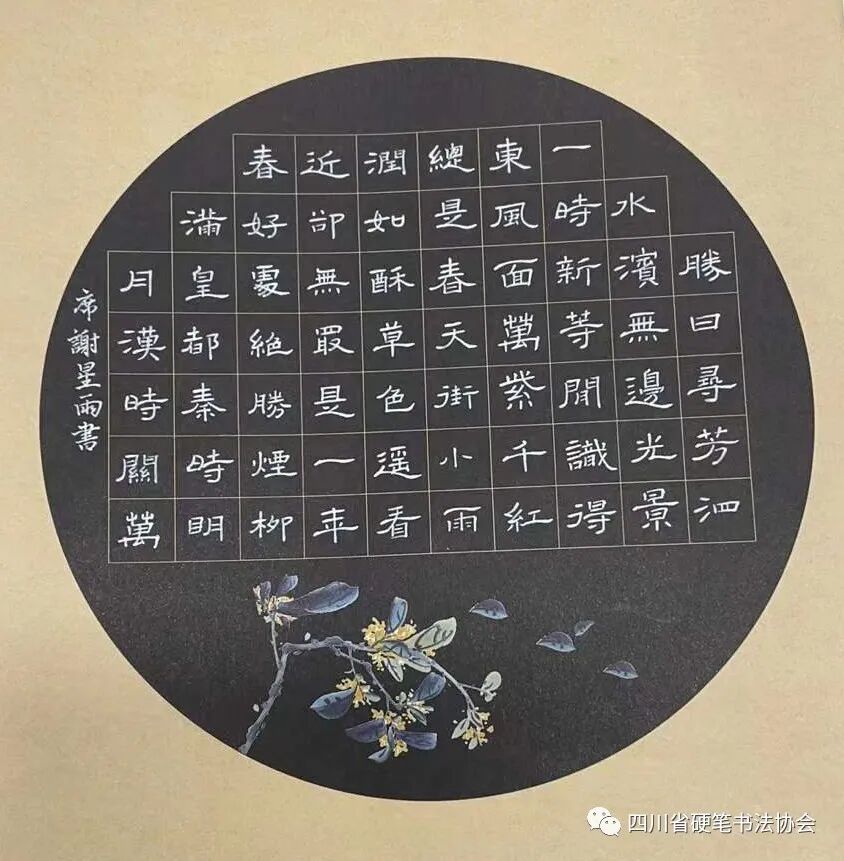 勝日尋芳泗
水濱無邊光景
一時新等閒識得
東風面萬紫千紅
總是春天街小雨
潤如酥草色遥看
近卻無最是一年
春好處絕勝煙柳
滿皇都秦時明
月漢時關萬
席謝星雨書
四川省硬笔书法协会